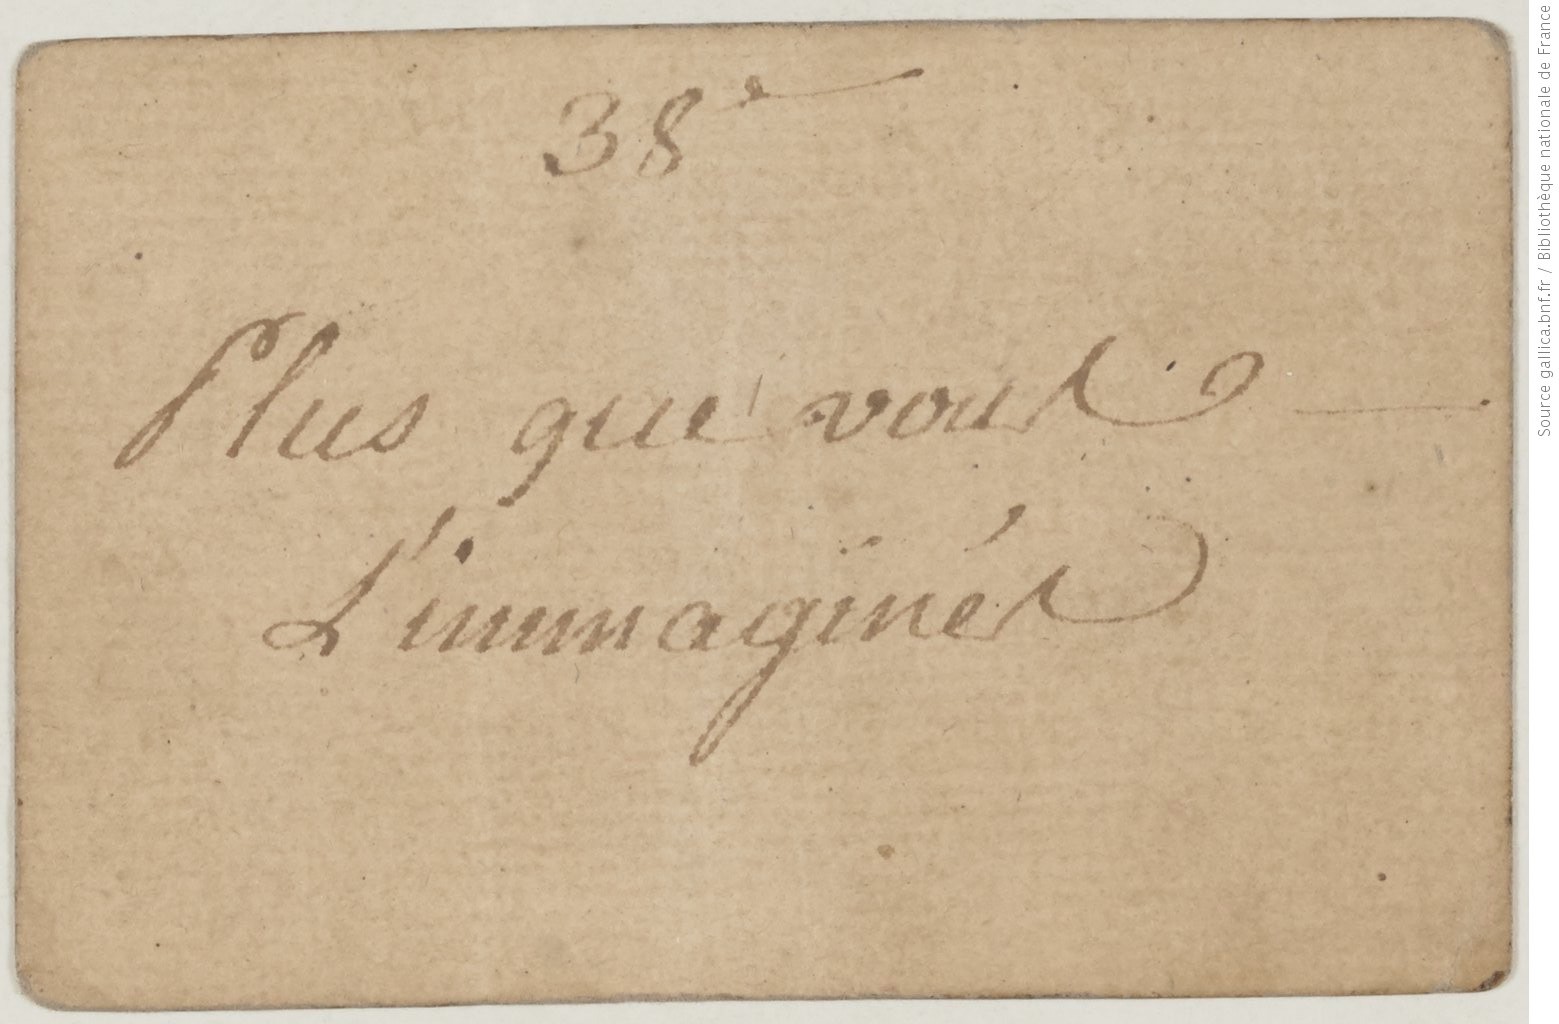 38e
Plus que vous
L'immaginés
Source gallica.bnf.fr / Bibliothèque nationale de France